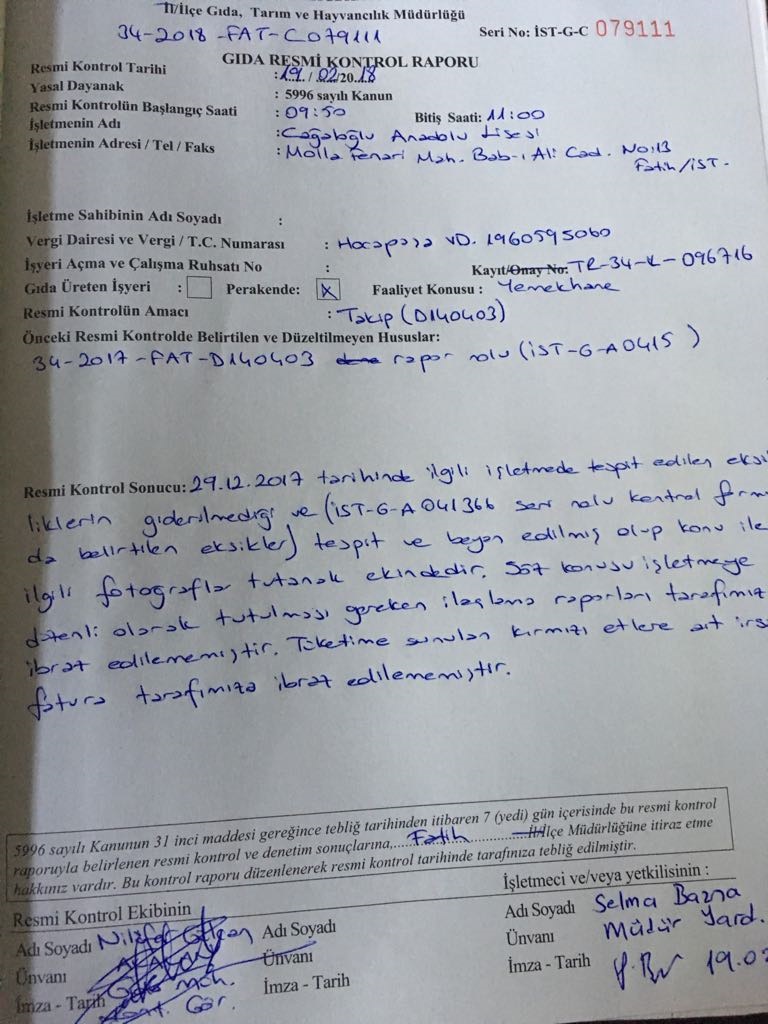 İl/İlçe Gıda, Tarım ve Hayvancılık Müdürlüğü
34-2018-FAT-C079111 Seri No: İST-G-C 079111
GIDA RESMİ KONTROL RAPORU
Resmi Kontrol Tarihi : 19/02/2018
Yasal Dayanak : 5996 sayılı Kanun
Resmi Kontrolün Başlangıç Saati : 09:50 Bitiş Saati: 11:00
İşletmenin Adı : Cağaloğlu Anadolu Lisesi
İşletmenin Adresi / Tel / Faks : Molla Fenari Mah. Bab-ı Ali Cad. No:13
Fatih/İST.
İşletme Sahibinin Adı Soyadı :
Vergi Dairesi ve Vergi / T.C. Numarası : Hocapaşa VD. 1960595060
İşyeri Açma ve Çalışma Ruhsatı No : Kayıt/Onay No: TR-34-K-096716
Gıda Üreten İşyeri : Perakende: X Faaliyet Konusu : Yemekhane
Resmi Kontrolün Amacı : Takip (D140403)
Önceki Resmi Kontrolde Belirtilen ve Düzeltilmeyen Hususlar:
34-2017-FAT-D140403 rapor nolu (İST-G-A0415)
Resmi Kontrol Sonucu: 29.12.2017 tarihinde ilgili işletmede tespit edilen eksi
liklerin giderilmediği ve (İST-G-A 041366 seri nolu kontrol form
da belirtilen eksikler) tespit ve beyan edilmiş olup konu ile
ilgili fotoğraflar tutanak ekindedir. Söz konusu işletmeye
düzenli olarak tutulması gereken ilaçlama raporları tarafımız
ibraz edilememiştir. Tüketime sunulan kırmızı etlere ait irs
fatura tarafımıza ibraz edilememiştir.
5996 sayılı Kanunun 31 inci maddesi gereğince tebliğ tarihinden itibaren 7 (yedi) gün içerisinde bu resmi kontrol
raporuyla belirlenen resmi kontrol ve denetim sonuçlarına,....Fatih............İl/İlçe Müdürlüğüne itiraz etme
hakkınız vardır. Bu kontrol raporu düzenlenerek resmi kontrol tarihinde tarafınıza tebliğ edilmiştir.
Resmi Kontrol Ekibinin
Adı Soyadı Nilüfer
Ünvanı
İmza - Tarih
Müh.
Kont. Gör.
Adı Soyadı
Ünvanı
İmza - Tarih
İşletmeci ve/veya yetkilisinin :
Adı Soyadı Selma Bazna
Ünvanı Müdür Yard.
İmza - Tarih 19.0